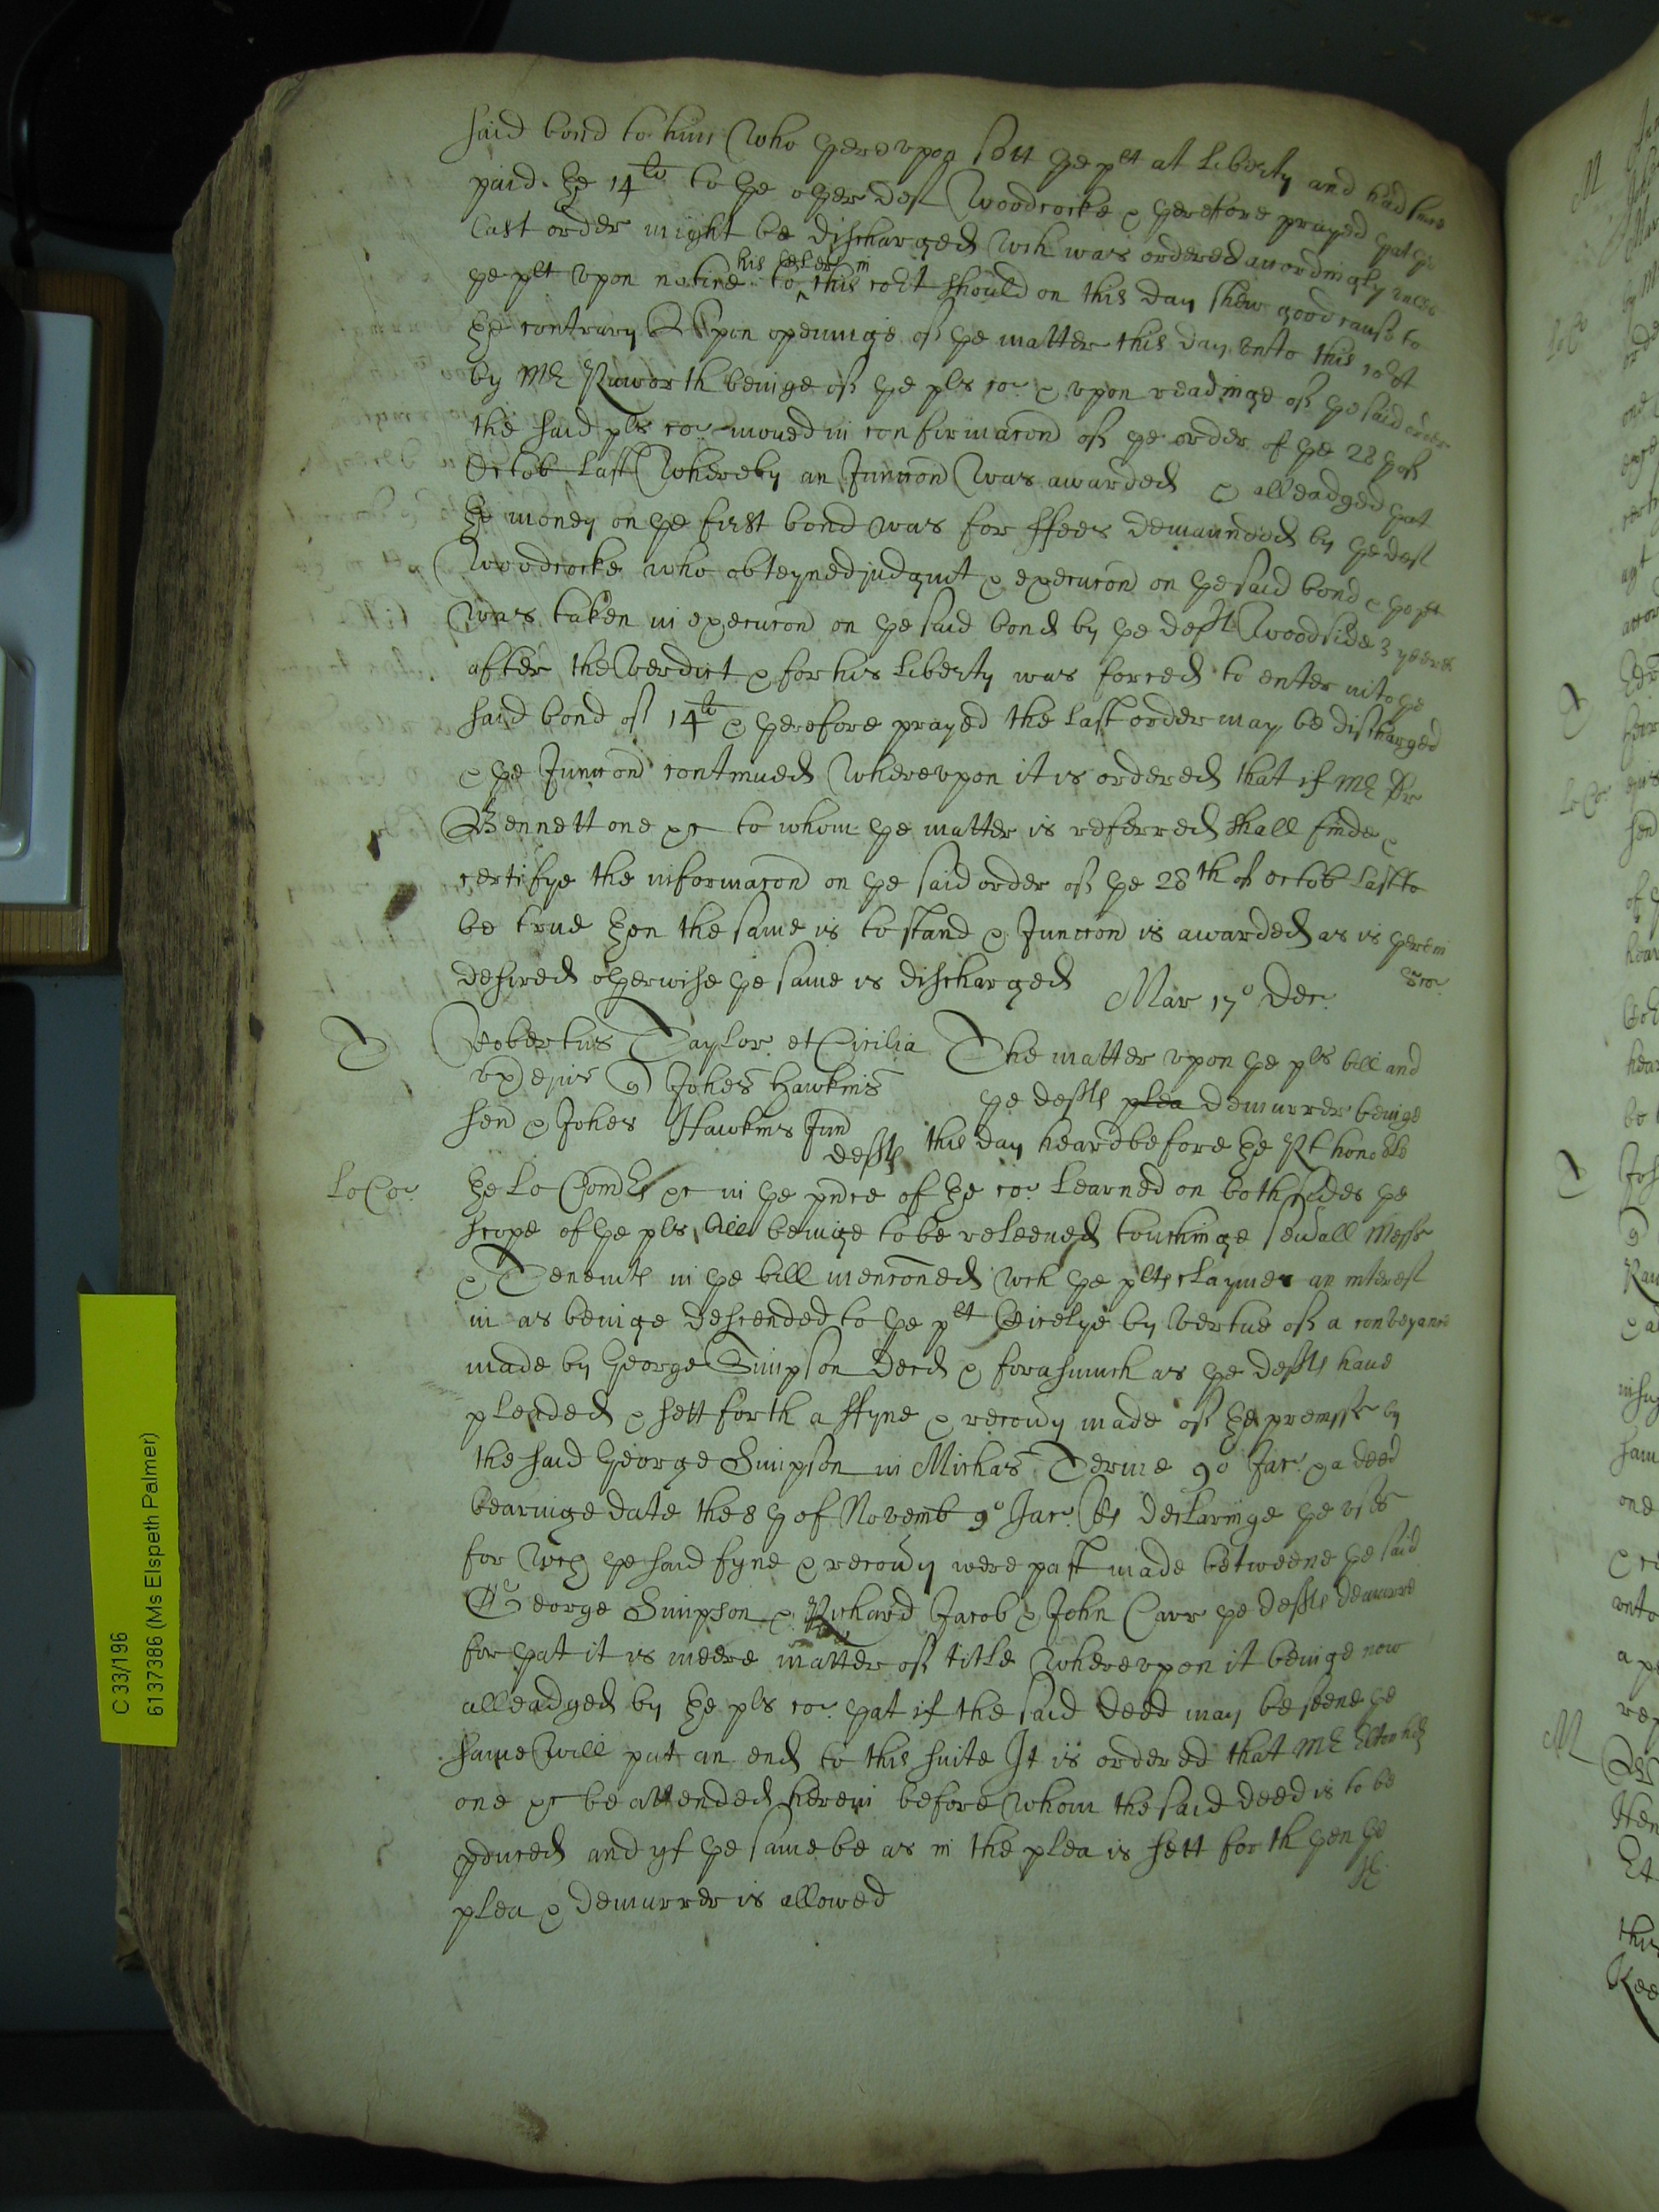 said bond to him who thereupon sett the plt at liberty and had since
paid the 14li to the other deft Woodcocke & therefore prayed that the
last order might be discharged wch was ordered accordingly unles
the plt vpon notice to his Clerke in this cort should on this day shew good cause to
the contrary & Vpon openinge of the matter this day vnto this cort
by Mr Ruworth beinge of the pls co. & vpon readinge of the said order
the said pls co. moued in confirmacon of the order of the 28th of
Octob last whereby an Junccon was awarded & alleadged that
the money on the first bond was for ffees demaunded by the deft
Woodcocke who obteyned judgmt & execucon on the said bond & the plt
was taken in execucon on the said bond by the deft Woodside 3 yeeres
after the Verdict & for his liberty was forced to enter into the
said bond of 14li & therefore prayed the last order may be discharged
& the Junccon continued Wherevpon it is ordered that if Mr Dr
Bennett one &c to whom the matter is referred shall finde &
certifye the informacon on the said order of the 28th of octob last to
be true then the same is to stand & Junccon is awarded as is therein
desired otherwise the same is discharged
Mar 17o Dec.
T Robertus Taylor et Cicilia
vx eius q Johes Hawkins
sen & Johes Hawkins Jun
defts
The matter vpon the pls bill and
the defts plea demurrer beinge
this day heard before the Rt honoble
Lo Co. the Lo Comdrs &c in the pnce of the co. learned on both sides the
scope of the pls bill beinge to be releeued touchinge seuall Messs
& Tenemts in the bill menconed wch the plts claymes an interest
in as beinge descended to the plt Cicelye by vertue of a conveyance
made by George Simpson Decd & forasmuch as the defts haue
pleaded & sett forth a ffyne & recouy made of the premisses by
the said George Simpson in Michas Terme 9o Jac. & a deed
bearinge date the 8th of Novemb 9o Jac. Rs declaringe the vses
for wch the said fyne & recouy were past made betweene the said
George Simpson & Richard Jacob & John Carr the defts demurre
for that it is meere matter of title Wherevpon it beinge now
alleadged by the pls co. that if the said deed may be seene the
same will put an end to this suite It is ordered that Mr Eltonhed
one &c be attended herein before whom the said deed is to be
pduced and yf the same be as in the plea is sett forth then the
plea & demurrer is allowed
C 33/196
6137386 (Ms Elspeth Palmer)